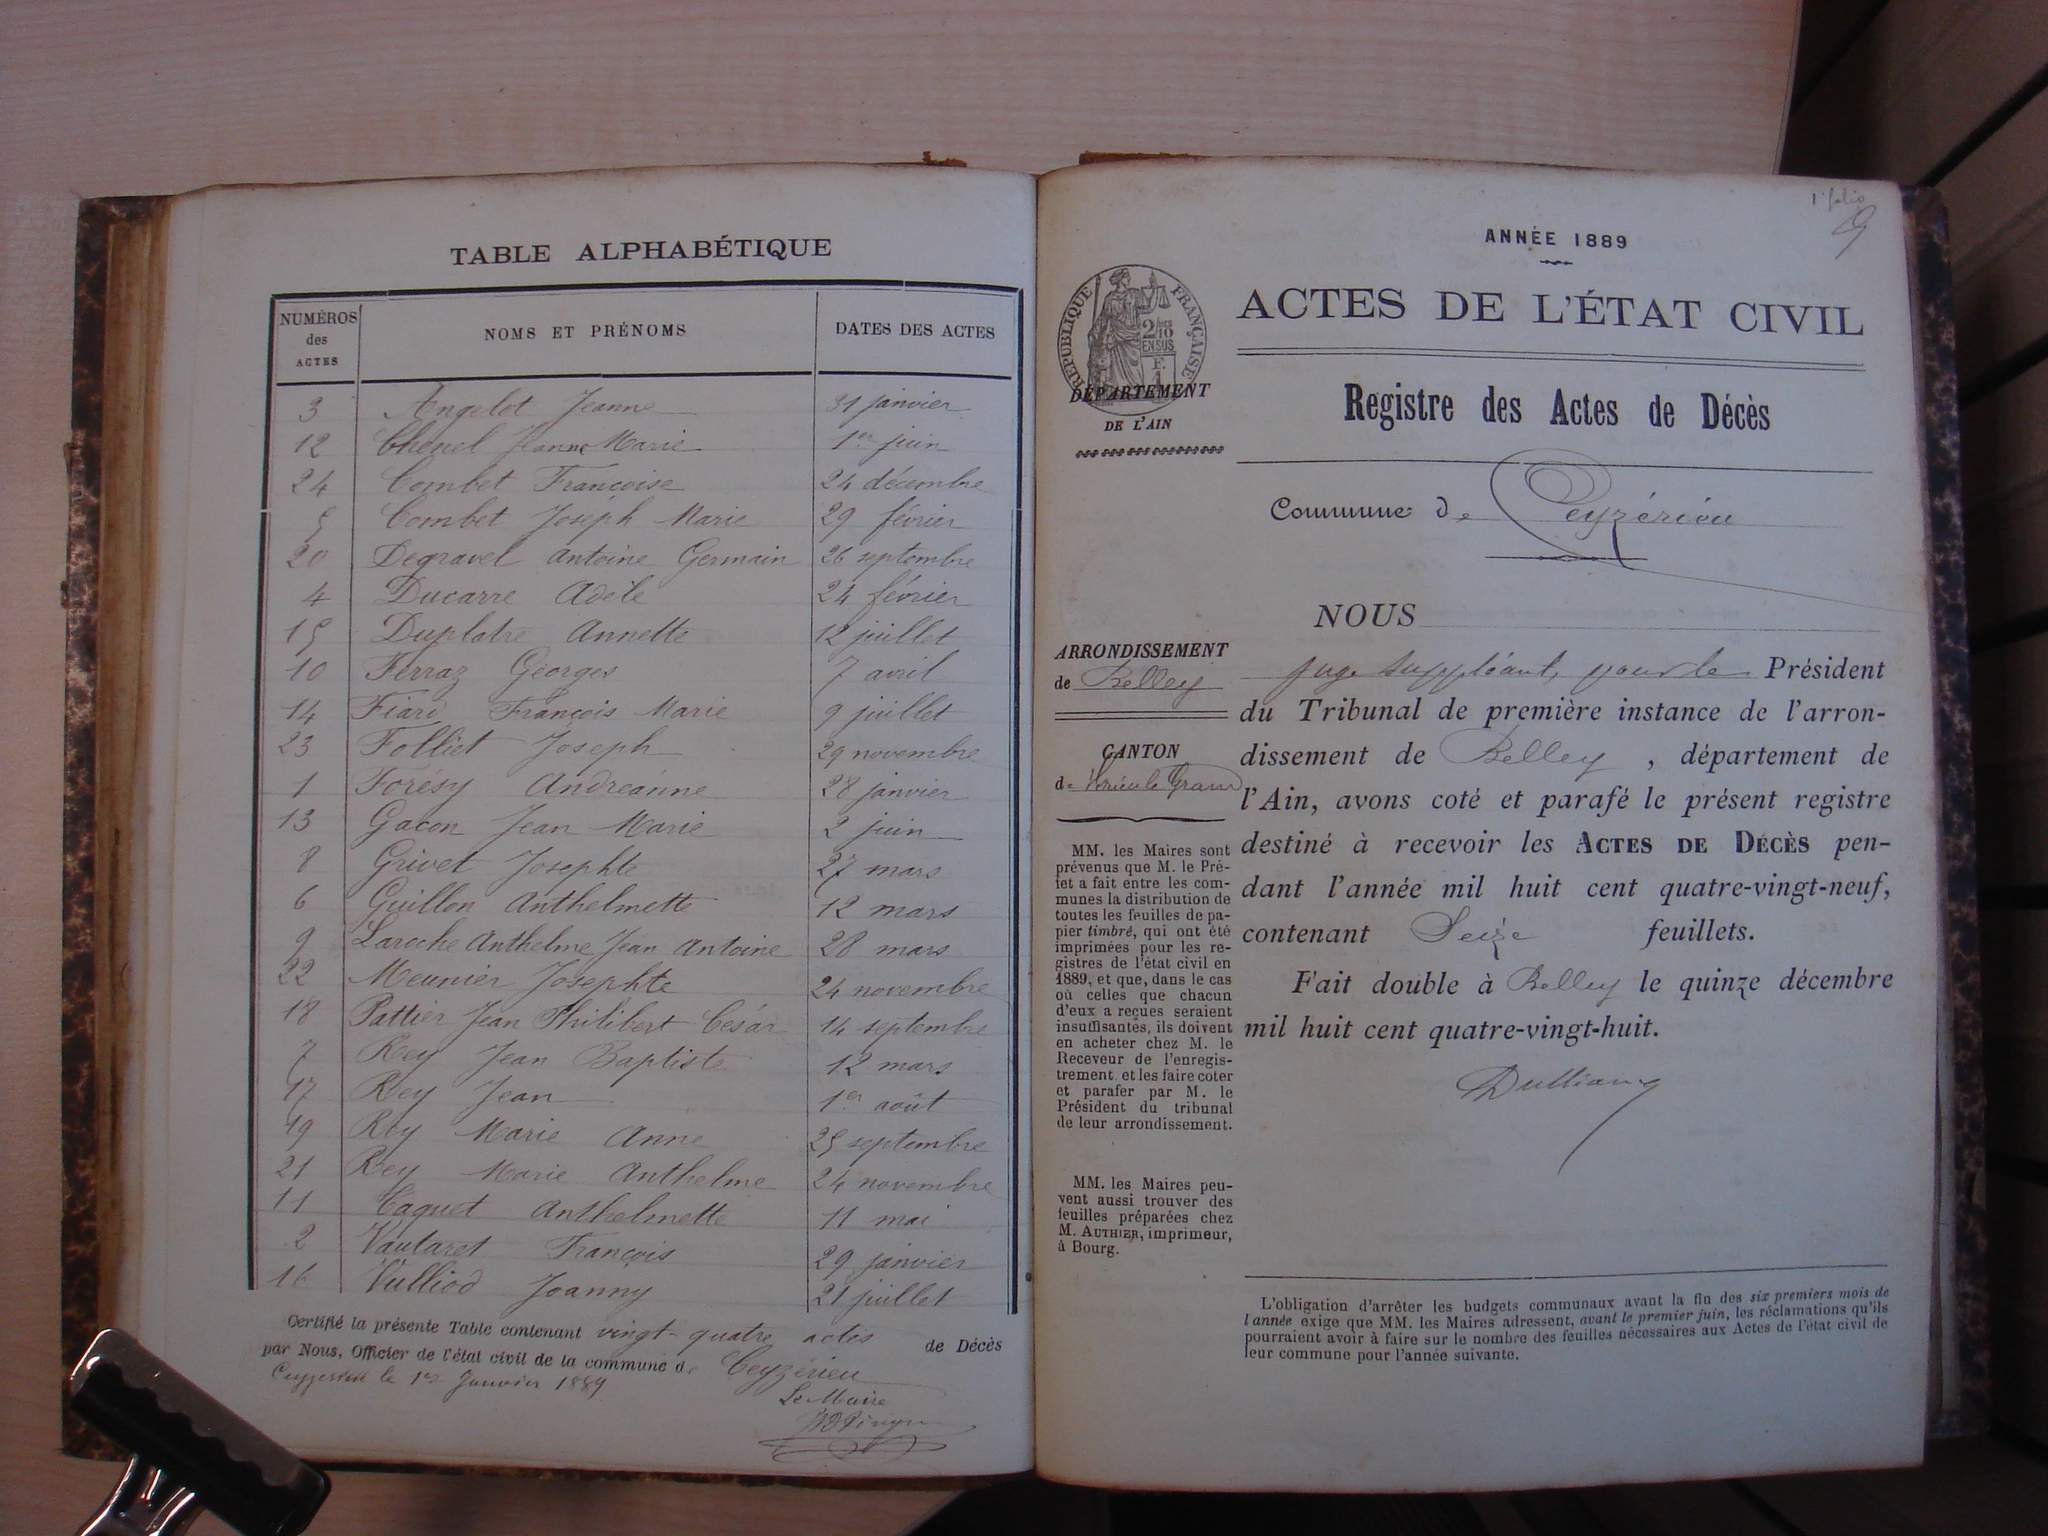 TABLE ALPHABÉTIQUE
NUMÉROS des ACTES NOMS ET PRÉNOMS DATES DES ACTES
3 Angelot Jeanne 31 janvier
12 Chenel Jeanne Marie 1er juin
24 Combet Françoise 24 décembre
5 Combet Joseph Marie 29 février
20 Degravel Antoine Germain 26 septembre
4 Ducarre Adèle 24 février
15 Duplatre Annette 12 juillet
10 Ferraz Georges 7 avril
14 Fiard François Marie 9 juillet
23 Folliet Joseph 29 novembre
1 Forésy Andréanne 28 janvier
13 Gacon Jean Marie 2 juin
8 Grivet Josephte 27 mars
6 Guillon Anthelmette 12 mars
9 Laroche Anthelme Jean Antoine 28 mars
22 Meunier Josephte 24 novembre
18 Pattier Jean Philibert César 14 septembre
7 Rey Jean Baptiste 12 mars
17 Rey Jean 1er août
19 Rey Marie Anne 25 septembre
21 Rey Marie Anthelme 24 novembre
11 Taquet Anthelmette 11 mai
2 Vautaret François 29 janvier
16 Vulliod Joanny 21 juillet
Certifié la présente Table contenant vingt-quatre actes de Décès
par Nous, Officier de l'état civil de la commune de Ceyzérieu
Ceyzerieu le 1er Janvier 1889
Le Maire
1er folio
ANNÉE 1889
RÉPUBLIQUE FRANÇAISE
2/10 EN SUS
ACTES DE L'ÉTAT CIVIL
DÉPARTEMENT
DE L'AIN
Registre des Actes de Décès
Commune de Ceyzérieu
NOUS
ARRONDISSEMENT
de Belley
CANTON
de Virieu le Grand
MM. les Maires sont
prévenus que M. le Pré-
fet a fait entre les com-
munes la distribution de
toutes les feuilles de pa-
pier timbré, qui ont été
imprimées pour les re-
gistres de l'état civil en
1889, et que, dans le cas
où celles que chacun
d'eux a reçues seraient
insuffisantes, ils doivent
en acheter chez M. le
Receveur de l'enregis-
trement et les faire coter
et parafer par M. le
Président du tribunal
de leur arrondissement.
MM. les Maires peu-
vent aussi trouver des
feuilles préparées chez
M. AUTHIER, imprimeur,
à Bourg.
juge suppléant, pour le Président
du Tribunal de première instance de l'arron-
dissement de Belley , département de
l'Ain, avons coté et parafé le présent registre
destiné à recevoir les ACTES DE DÉCÈS pen-
dant l'année mil huit cent quatre-vingt-neuf,
contenant Seize feuillets.
Fait double à Belley le quinze décembre
mil huit cent quatre-vingt-huit.
L'obligation d'arrêter les budgets communaux avant la fin des six premiers mois de
l'année exige que MM. les Maires adressent, avant le premier juin, les réclamations qu'ils
pourraient avoir à faire sur le nombre des feuilles nécessaires aux Actes de l'état civil de
leur commune pour l'année suivante.